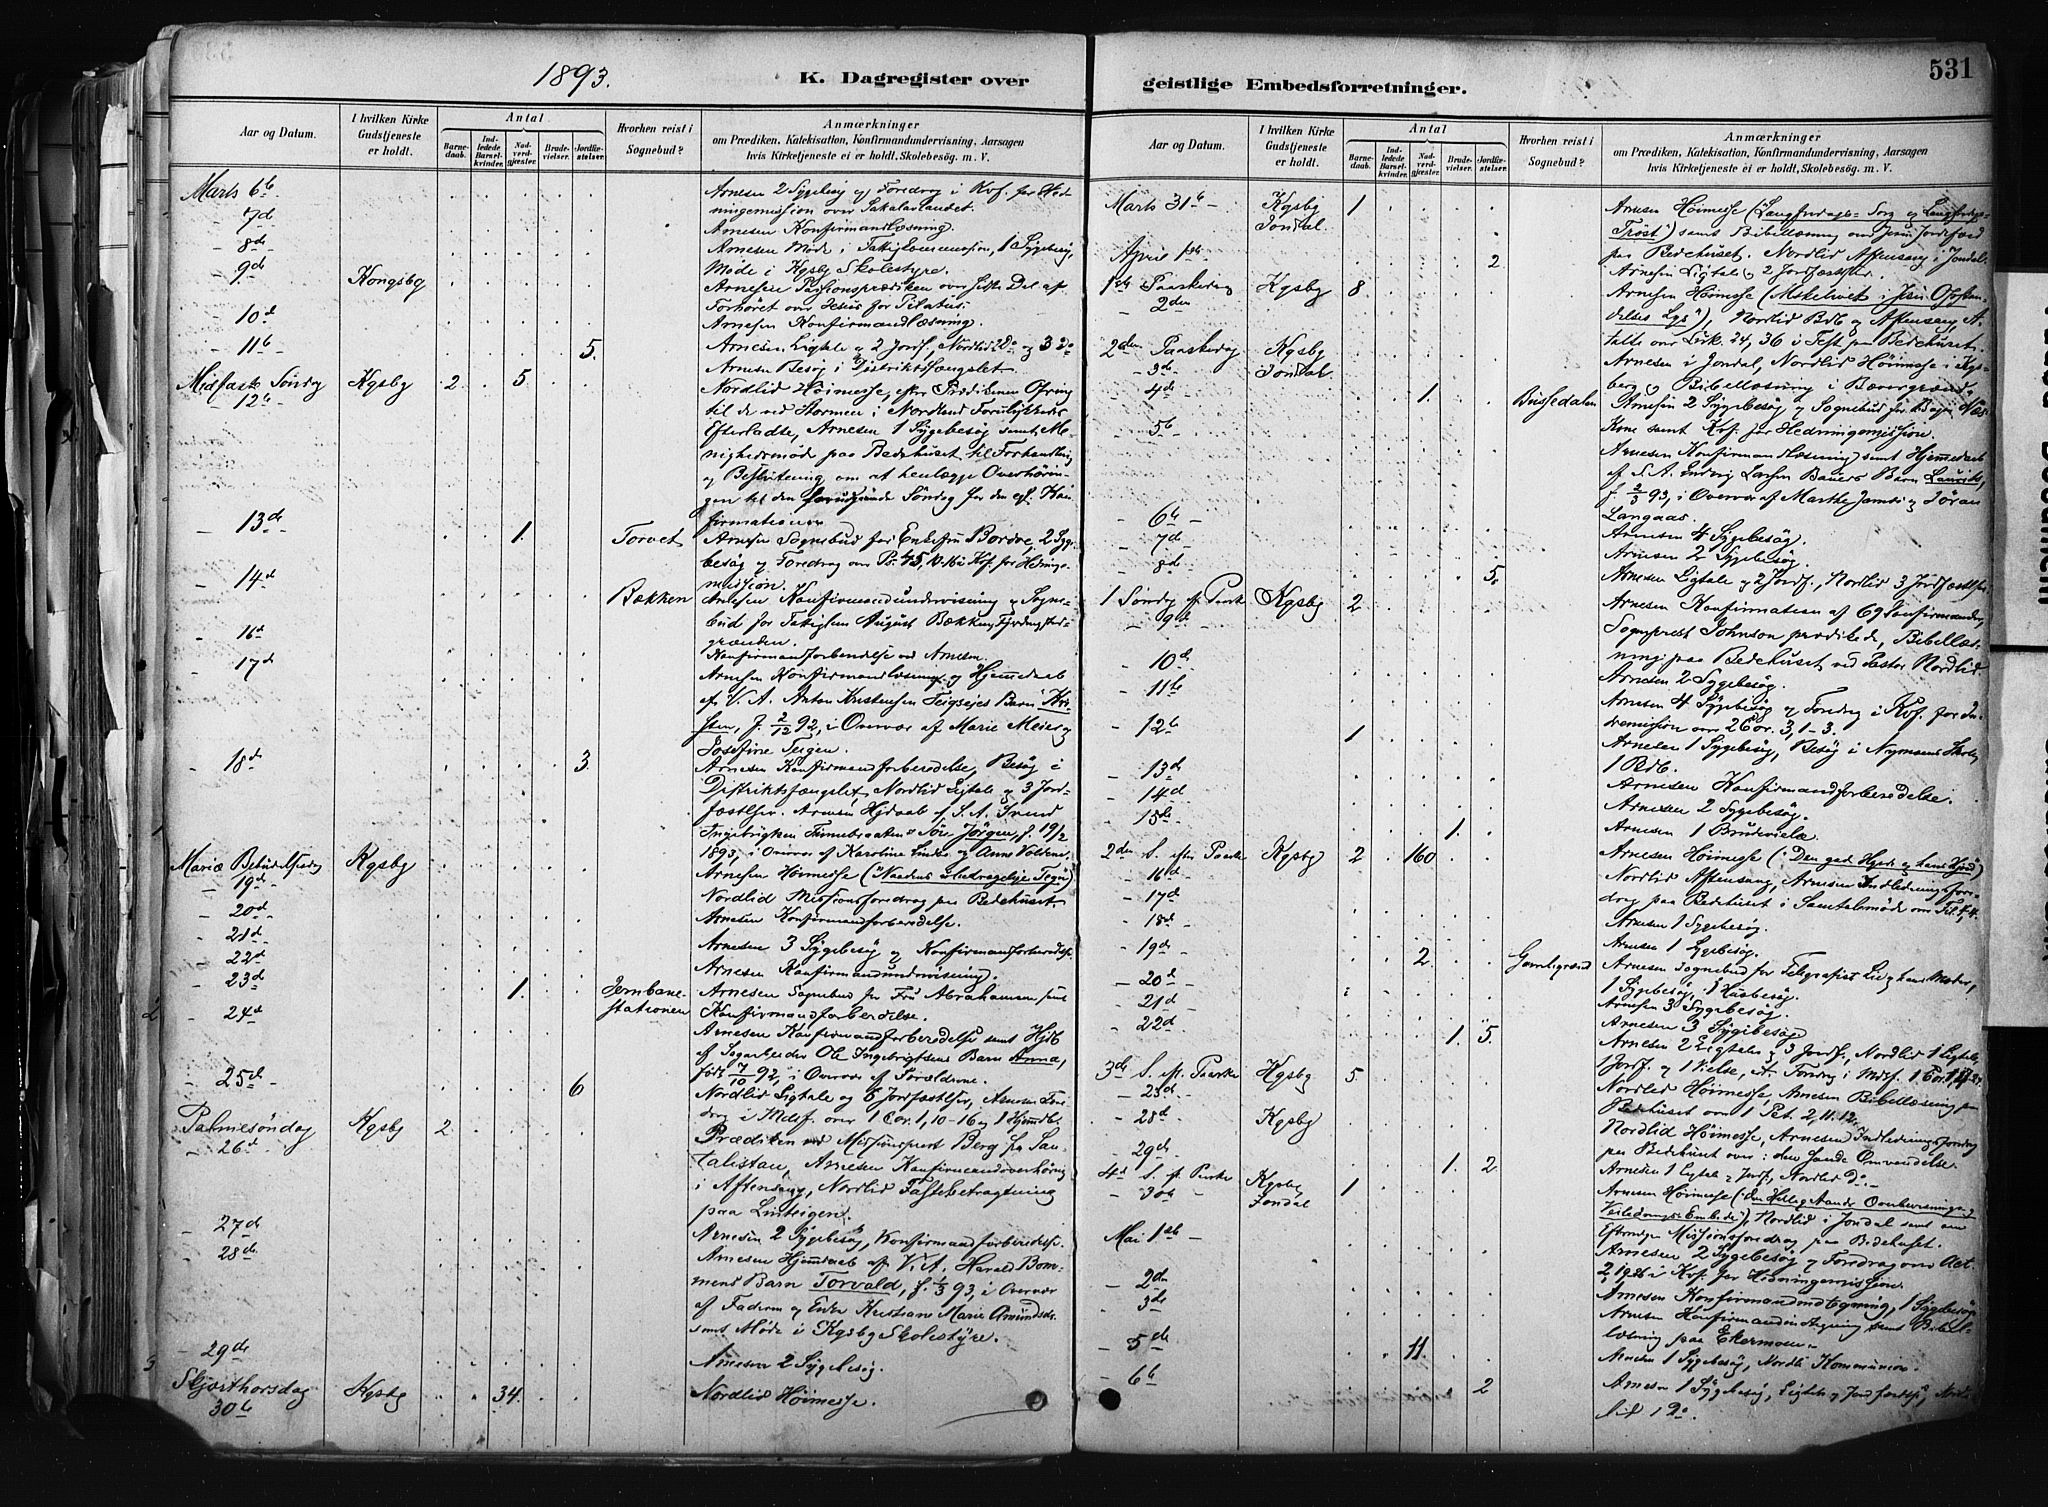 1893.
K. Dagregister over
geistlige Embedsforretninger.
531
Aar og Datum.
I hvilken Kirke Gudstjeneste er holdt.
Antal
Barnedaab.
Indledede Barselkvinder.
Nadverdgjester.
Brudevielser.
Jordfæstelser.
Hvorhen reist i Sognebud?
Anmærkninger
om Prædiken, Katekisation, Konfirmandundervisning, Aarsagen
hvis Kirketjeneste ei er holdt, Skolebesøg. m. V.
Marts 6te Arnesen 2 Sygebesøg og Foredrag i Kvf. for Hed-
ningemission over Sakalavlandet.
- 7de Arnesen Konfirmandlæsning.
- 8de Arnesen Møde i Fattigkommission, 1 Sygebesøg,
Møde i Kgsbg Skolestyre.
- 9de Kongsbg Arnesen Passionsprædiken over sidste Del af
Forhøret over Jesus for Pilatus.
- 10de Arnesen Konfirmandlæsning.
- 11te 5. Arnesen Ligtale og 2 Jordf., Nordlid 2 Do og 3 Do
Arnesen Besøg i Distriktsfængslet.
Midfaste Søndag Kgsbg 2 5. Nordlid Høimesse, efter Prædikenen Ofring
- 12te til de ved Stormen i Nordland Forulykkedes
Efterladte, Arnesen 1 Sygebesøg samt Me-
nighedsmøde paa Bedehuset til Forhandling
og Beslutning om at henlægge Overhørin-
gen til den forudgaaende Søndag før den egl. Kon-
firmationen
- 13de 1. Torvet Arnesen Sognebud for Enkefru Bordoe, 2 Syge-
besøg og Foredrag over Ps. 45, 10-16 i Kvf. for Hedninge-
mission.
- 14de Bækken Arnesen Konfirmandundervisning og Sogne-
bud for Fattiglem August Bækken,
grænden.
- 16de Konfirmandforberedelse ved Arnesen.
- 17de Arnesen Konfirmandlæsning og Hjemmedaab
af V. A. Anton Kristensen Teigsejes Barn Kri-
sten, f. 2/12 92, i Overvær af Marie Meier og
Josefine Teigen.
- 18de 3. Arnesen Konfirmandforberedelse, Besøg i
Distriktsfængslet, Nordlid Ligtale og 3 Jord-
fæstlser. Arnesen Hjdaab af S. A. Svend
Ingebrigtsen Søn Jørgen, f. 19/2
1893, i Overvær af Karoline Linke og Anne
Mariæ Bebudelsesdag Kgsbg Arnesen Høimesse ("Naadens uledsagelige Tegn")
- 19de Nordlid Missionsforedrag paa Bedehuset.
- 20de Arnesen Konfirmandforberedelse.
- 21de Arnesen 3 Sygebesøg og Konfirmandforberedelse.
- 22de Arnesen Konfirmandundervisning.
- 23de 1. Jernbane- Arnesen Sognebud for Fru Abrahamsen samt
stationen Konfirmandforberdelse.
- 24de Arnesen Konfirmandforberedelse samt Hjdb
af Sagarbeider Ole Ingebrigtsens Barn Anna,
født 7/10 92, i Overvær af Forældrene.
- 25de 6 Nordlid Ligtale og 6 Jordfæstlser, Arnesen Fore-
drag i Mdsf. over 1 Cor. 1, 10-16 og 1 Hjemdb.
Palmesøndag Kgsbg 2 Prædiken ved Missionsprest Berg fra San-
- 26de talistan, Arnesen Konfirmandoverhøring
i Aftensang, Nordlid Fastebetragtning
paa Linteigen.
- 27de Arnesen 2 Sygebesøg, Konfirmandforberedelse.
- 28de Arnesen Hjemmedaab af V. A. Harald Bom-
mens Barn Torvald, f. 1/3 93, i Overvær
af Faderen og Enke Kristiane Marie Amundsdr.
samt Møde i Kgsbg Skolestyre.
- 29de Arnesen 2 Sygebesøg.
Skjærthorsdag Kgsbg 34. Nordlid Høimesse.
30te
Aar og Datum.
I hvilken Kirke Gudstjeneste er holdt.
Antal
Barnedaab.
Indledede Barselkvinder.
Nadverdgjester.
Brudevielser.
Jordfæstelser.
Hvorhen reist i Sognebud?
Anmærkninger
om Prædiken, Katekisation, Konfirmandundervisning, Aarsagen
hvis Kirketjeneste ei er holdt, Skolebesøg. m. V.
Marts 31te - Kgsbg 1 Arnesen Høimesse ("Langfredags-Sorg og Langfredags-
Jondal Trøst") samt Bibellæsning om Jesu Jordefærd
paa Bedehuset. Nordlid Aftensang i Jondal.
April 1ste 2 Arnesen Ligtale og 2 Jordfæstelser.
1ste Paaskedag Kgsbg 8 Arnesen Høimesse (Mskelivet i Jesu Opstan-
2den delses Lys"), Nordlid Brdb og Aftensang, A.
talte over Luk. 24, 36 i Fest paa Bedehuset.
2den Paaskedag Kgsbg Arnesen i Jondal, Nordlid Høimesse i Kgs-
- 3de Jondal berg og Bibellæsning i Bævergrænd.
- 4de 1. Bussedalen Arnesen 2 Sygebesøg og Sognebud for
Kone samt Kvf. for Hedningemission.
- 5te Arnesen Konfirmandlæsning samt Hjemmedaab
af S. A. Ludvig Larsen Bauers Barn Laurits,
f. 2/3 93, i Overvær af Marthe og Jøran
Langaas.
- 6te Arnesen 4 Sygebesøg.
- 7de Arnesen 2 Sygebesøg.
- 8de 5. Arnesen Ligtale og 2 Jordf., Nordlid 3 Jordfæstlser
1 Søndg ef. Paaske Kgsbg 2 Arnesen Konfirmation af 69 Konfirmander,
- 9de Sogneprest Johnson prædikede, Bibellæs-
ning paa Bedehuset ved Pastor Nordlid.
- 10de Arnesen 2 Sygebesøg.
- 11te Arnesen 4 Sygebesøg og Foredrag i Kvf. for In-
dremission over 2 Cor. 3, 1-3.
- 12te 1 Arnesen 1 Sygebesøg, Besøg i Nymoens Skole,
1 Brdb.
- 13de Arnesen Konfirmandforberedelse.
- 14de Arnesen 2 Sygebesøg.
- 15de 1. Arnesen 1 Brudevielse
2den S. efter Paaske Kgsbg 2 160 Arnesen Høimesse ("Den gode Hyrde og hans Hjord")
- 16de Nordlid Aftensang, Arnesen Indledningsfore-
- 17de drag paa Bedehuset i Samtalemøde om Fil. 4, 4.
- 18de Arnesen 1 Sygebesøg.
- 19de 2. Gamlegrænd Arnesen 1 Sygebesøg.
- 20de Arnesen Sognebud for Telegrafist Lie og hans Moder,
1 Sygebesøg, 1 Husbesøg.
- 21de Arnesen 3 Sygebesøg.
- 22de 1. 5. Arnesen 3 Sygebesøg
Arnesen 2 Ligtaler og 3 Jordf., Nordlid 1 Ligtale,
3de S. eft. Paaske Kgsbg 5. 1 Jordf. og 1 Vielse, A. Foredrag i Mdsf. 1 Cor. 1,
- 23de Nordlid Høimesse, Arnesen Bibellæsning paa
Bedehuset over 1 Pet. 2, 11. 12.
- 28de Kgsbg Nordlid Høimesse, Arnesen Indledningsforedrag
paa Bedehuset over: den sande Omvendelse.
- 29de 1. 2. Arnesen 1 Ligtale og Jordf., Nordlid Do -
4de S. ef. Paaske Kgsbg 1 Arnesen Høimesse ("den Hellig Aands Overbevisnings- og
- 30te Jondal Veilednings-Embede"), Nordlid i Jondal samt om
Eftermdgn Missionsforedrag paa Bedehuset.
Mai 1ste Arnesen 2 Sygebesøg og Foredrag over Act.
i Kvf. for Hedningemission.
- 2den Arnesen Konfirmandmodtagning, 1 Sygebesøg.
- 3de Arnesen Konfirmandindtegning samt Bibel-
læsning paa Ekermoen.
- 5te 11. Arnesen 1 Sygebesøg, Nordli Kommunion.
- 6te 2 Arnesen 1 Sygebesøg, Ligtale og Jordfæstlse, Nord-
lid 1 Do.